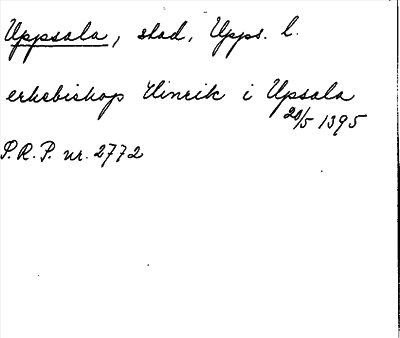 Uppsala, stad, Upps. l.
erkebiskop Hinrik i Upsala
20/5 1395
P.R.P. nr. 2772